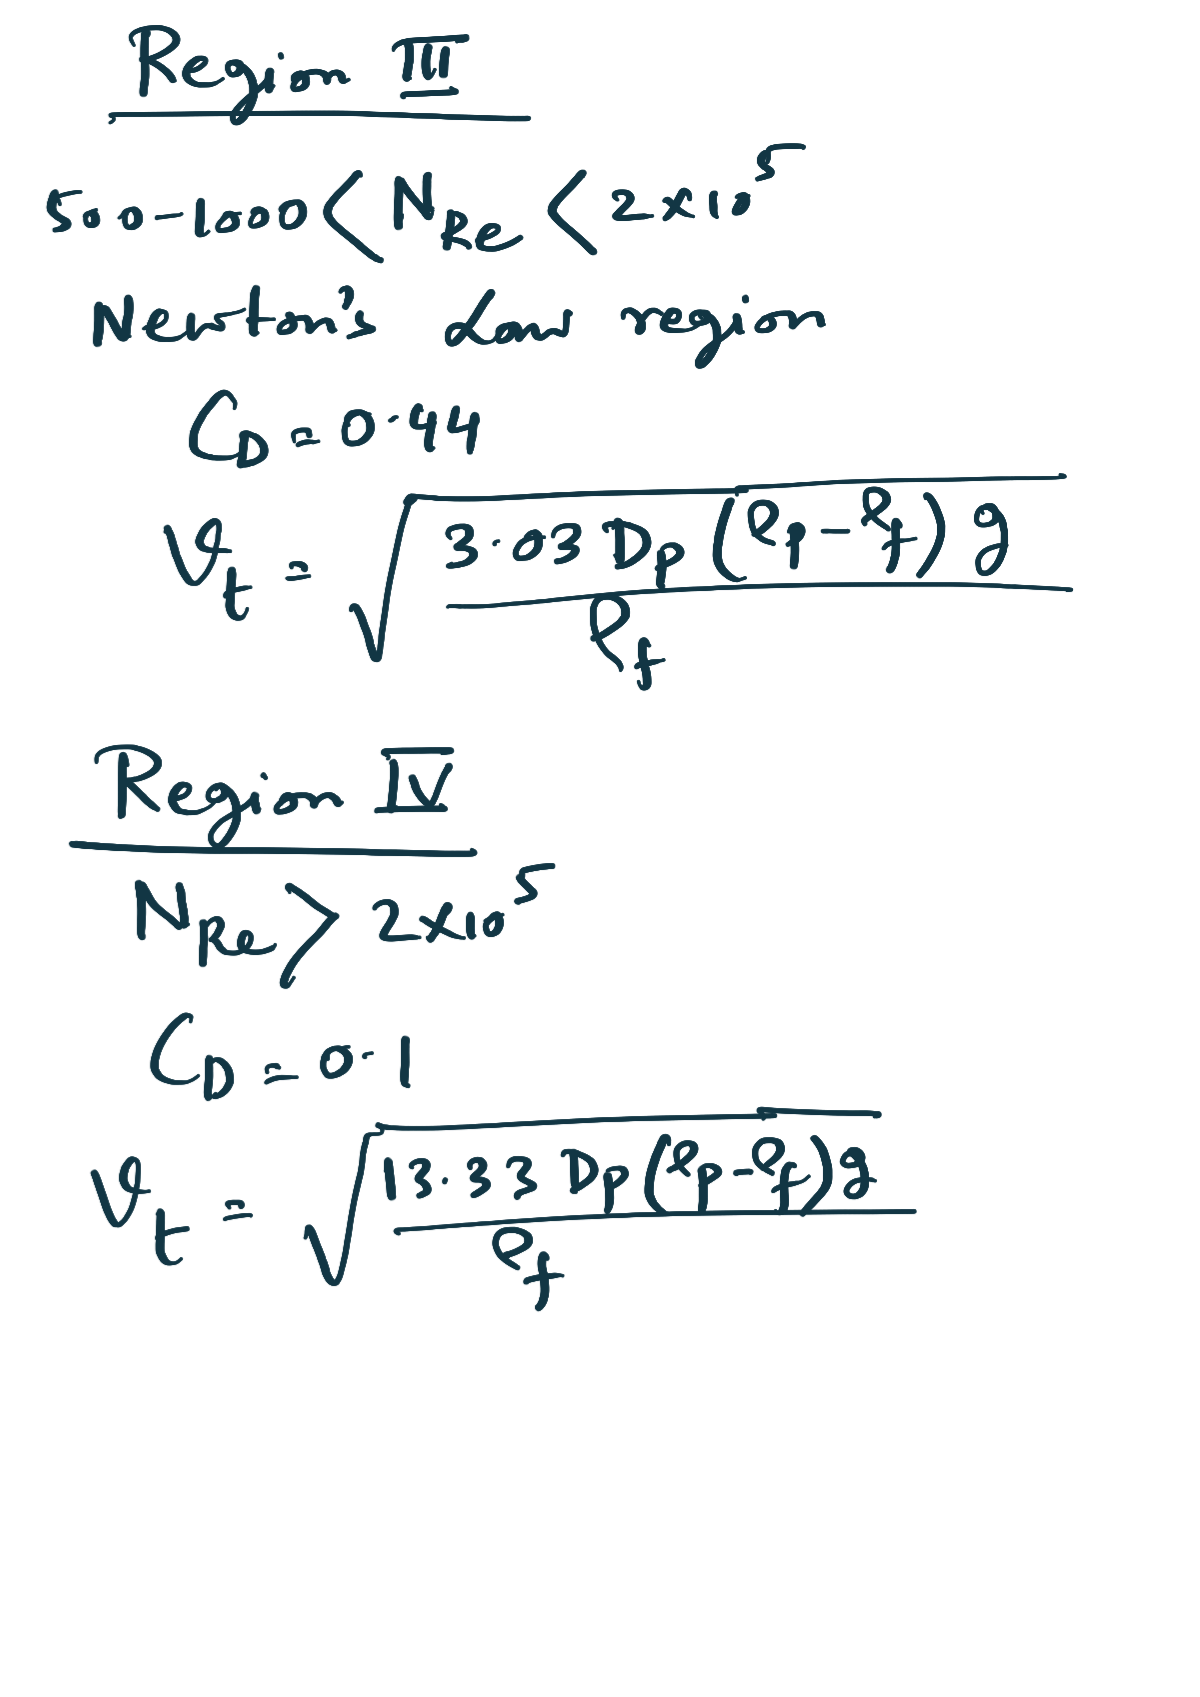 Region III
500-1000 < N_Re < 2×10^5
Newton's Law region
C_D = 0.44
v_t = √(3.03 D_p (ρ_p - ρ_f) g / ρ_f)
Region IV
N_Re > 2×10^5
C_D = 0.1
v_t = √(13.33 D_p (ρ_p - ρ_f) g / ρ_f)